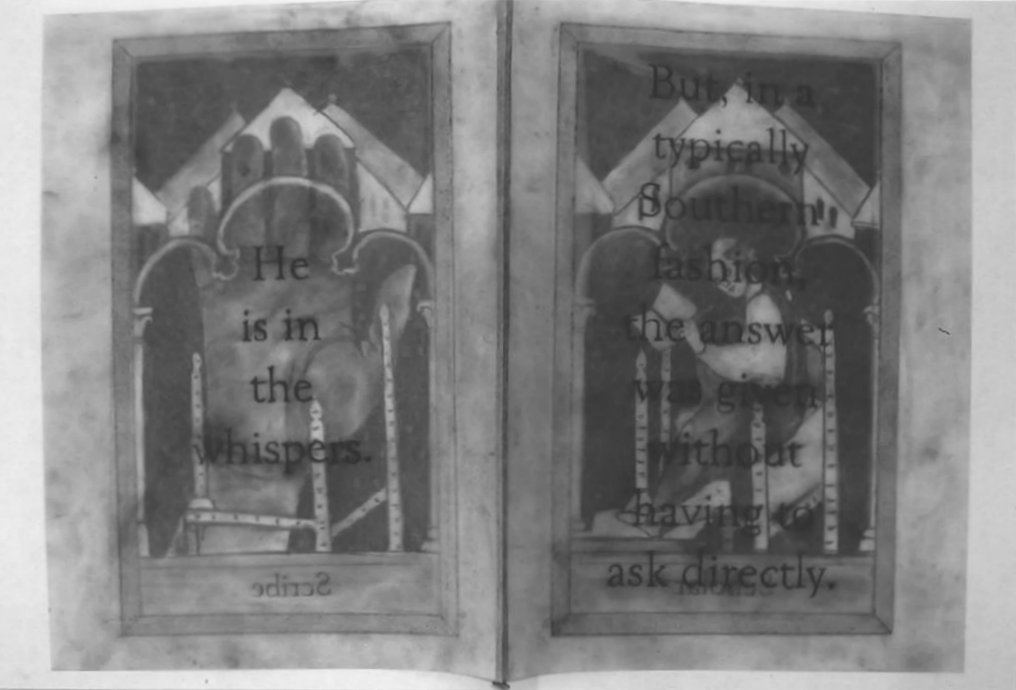 He
is in
the
whispers.
Scribe
But, in a
typically
Southern
fashion,
the answer
was given
without
having to
ask directly.